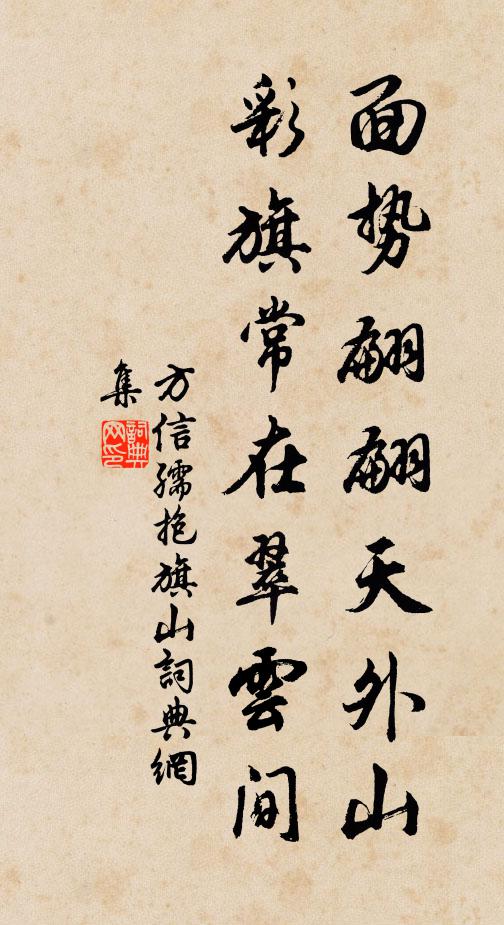 面势翩翩天外山
彩旗常在翠雲间
方信孺抱旗山詞典網
集
詞典
网印